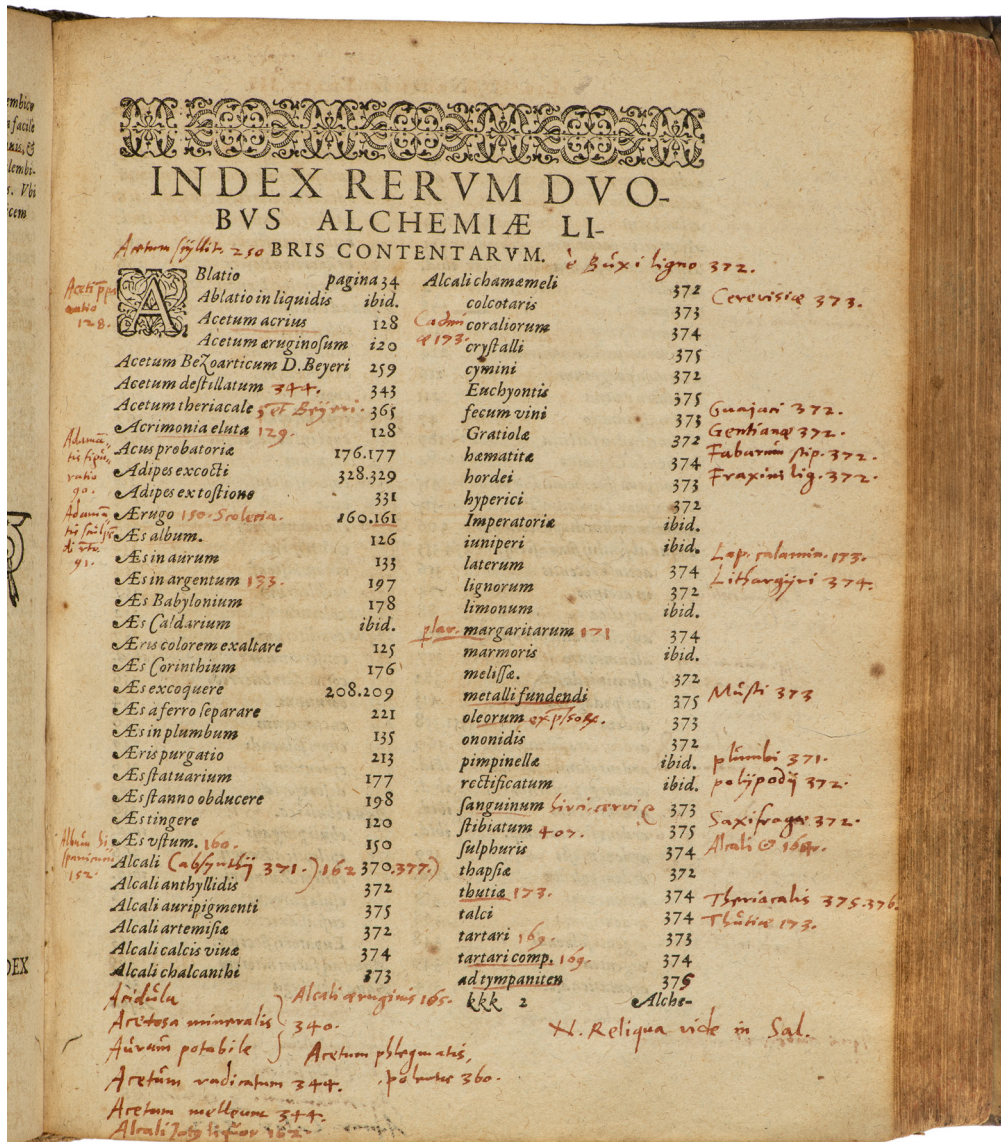 INDEX RERVM DVO-
BVS ALCHEMIÆ LI-
BRIS CONTENTARVM.
Acetum scyllit. 250
è Buxi ligno 372.
ABlatio pagina 34
Ablatio in liquidis ibid.
Acetum acrius 128
Acetum æruginosum 120
Acetum Bezoarticum D. Beyeri 259
Acetum destillatum 344. 343
Acetum theriacale et Beyeri. 365
Acrimonia eluta 129. 128
Acus probatoriæ 176.177
Adipes excocti 328.329
Adipes ex tostione 331
Ærugo 150. Scolecia. 160.161
Æs album. 126
Æs in aurum 133
Æs in argentum 133. 197
Æs Babylonium 178
Æs Caldarium ibid.
Æris colorem exaltare 125
Æs Corinthium 176
Æs excoquere 208.209
Æs a ferro separare 221
Æs in plumbum 135
Æris purgatio 213
Æs statuarium 177
Æs stanno obducere 198
Æs tingere 120
Æs vstum. 160. 150
Alcali (absynthij 371.) 162 370.377.)
Alcali anthyllidis 372
Alcali auripigmenti 375
Alcali artemisiæ 372
Alcali calcis viuæ 374
Alcali chalcanthi 373
Aceti
ratio
128.
ratio
90.
91.
152.
Alcali chamæmeli 372
colcotaris 373
coraliorum 374
crystalli 375
cymini 372
Euchyontis 375
fecum vini 373
Gratiolæ 372
hæmatitæ 374
hordei 373
hyperici 372
Imperatoriæ ibid.
iuniperi ibid.
laterum 374
lignorum 372
limonum ibid.
margaritarum 171 374
marmoris ibid.
melissæ. 372
metalli fundendi 375
oleorum 373
ononidis 372
pimpinellæ ibid.
rectificatum ibid.
sanguinum hirci, cervi 373
stibiatum 407. 375
sulphuris 374
thapsiæ 372
thutiæ 173. 374
talci 374
tartari 169. 373
tartari comp. 169. 374
ad tympaniten 375
kkk 2 Alche-
Cadmi
æ 173.
Cerevisiæ 373.
Guajaci 372.
Gentianæ 372.
Fabarum stip. 372.
Fraxini lig. 372.
Lap. calamin. 173.
Lithargyri 374.
Musti 373
plumbi 371.
polypodij 372.
Saxifragæ 372.
Theriacalis 375.376.
Thutiæ 173.
Acidula
Acetosa mineralis 340.
Aurum potabile
Alcali æruginis 165.
Acetum phlegmatis,
360.
Acetum radicatum 344.
Acetum melleum 344.
N. Reliqua vide in Sal.
embice
facile
lembi-
Vbi
icem
DEX